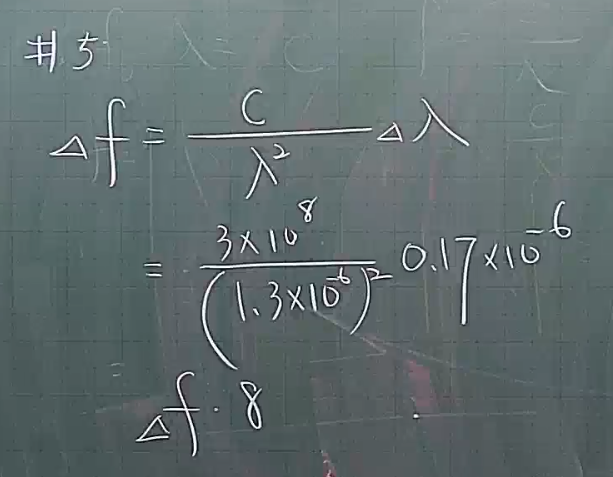 #5
Δf = C/λ² Δλ
= 3×10⁸/(1.3×10⁻⁶)² 0.17×10⁻⁶
=
Δf · 8